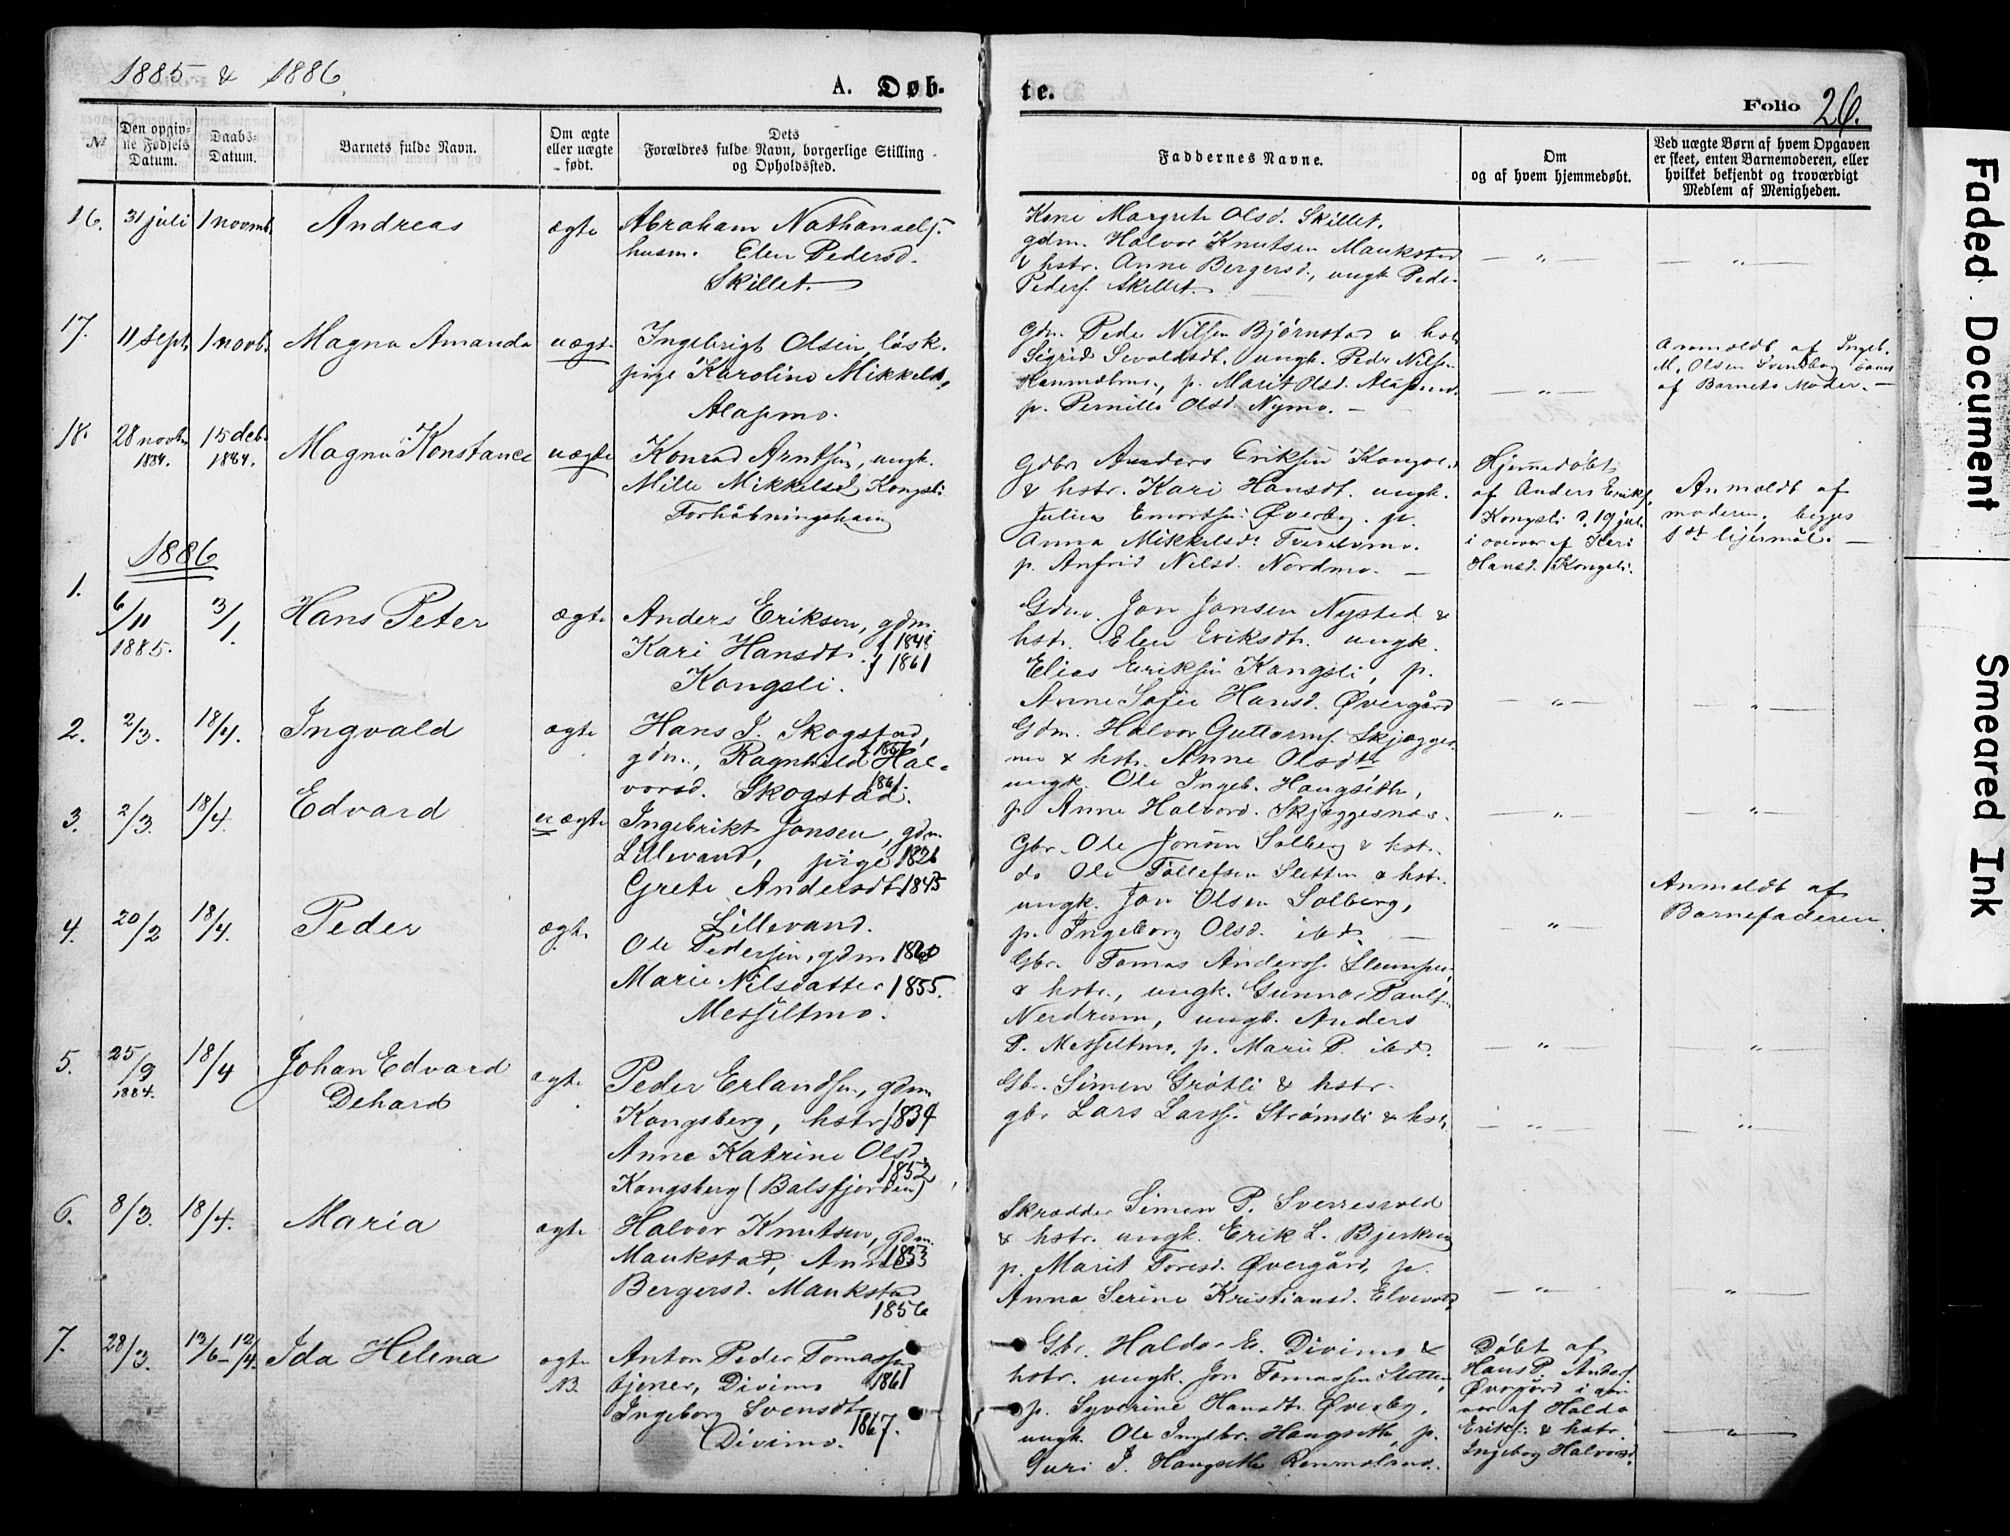 1885 & 1886.
A. Døb-
te.
Folio 26.
№
Den opgiv-
ne Fødsels
Datum.
Daabs-
Datum.
Barnets fulde Navn.
Om ægte
eller uægte
født.
Dets
Forældres fulde Navn, borgerlige Stilling
og Opholdssted.
Faddernes Navne.
Om
og af hvem hjemmedøbt.
Ved uægte Børn af hvem Opgaven
er skeet, enten Barnemoderen, eller
hvilket bekjendt og troværdigt
Medlem af Menigheden.
16. 31 juli 1 novmb. Andreas ægte
Abraham Nathanaels.
husm. Elen Pedersd.
Skillet.
Kone Margrete Olsd. Skillet.
gdm. Halvor Knutsen Maukstad
& hstr. Anne Bergersd., ungk. Peder
Peders. Skillet.
17. 11 sept. 1 novb. Magna Amanda uægte
Ingebrigt Olsen, løsk.
pige Karoline Mikkelsd.
Alapmo.
Gdm. Peder Nilsen Bjørnstad & hstr.
Sigrid Sevaldsdt. ungk. Peder Nilsen
p. Marit Olsd.
p. Pernille Olsd. Nymo.
Anmeldt af Ingeb.
M. Olsen
af Barnets Moder.
18. 28 novbr. 1884. 15 deb. 1884. Magna Konstance uægte
Konrad Arntsen, ungk.
Mille Mikkelsd. Kongsli
Forhåbningshein
Gdbr. Anders Eriksen Kongsli
& hstr. Kari Hansdt. ungk.
Julius Øverby. p.
Anna Mikkelsd.
p. Anfrid Nilsd. Nordmo.
Hjemmedøbt
af Anders Eriks.
Kongsli d. 19 jul.
i overvær af Kari
Hansd. Kongsli.
Anmeldt af
moderen, begges
1ste lejermål.
1886
1. 6/11 1885. 3/1. Hans Peter ægte
Anders Eriksen, gdm.
Kari Hansdt. f 1848
f 1861
Kongsli.
Gdm. Jon Jonsen Nysted &
hstr. Elen Eriksdt. ungk.
Elias Eriksen Kongsli, p.
Anne Sofie Hansd. Øvergård
2. 2/3. 18/4. Ingvald ægte
Hans J. Skogstad,
gdm., Ragnhild Hal-
vorsd. Skogstad. 1861
Gdm. Halvor Guttorms. Skjægges-
nes & hstr. Anne Olsdtr.
ungk. Ole Ingeb. Haugseth,
p. Anne Halvord. Skjæggesnes.
3. 2/3. 18/4. Edvard uægte
Ingebrikt Jonsen, gdm.
Lillevand, pige 1826
Grete Andersdt. 1843
Lillevand.
Gbr. Ole Jonsen Solberg & hstr.
do Ole Tollefsen Sletten & hstr.
ungk. Jon Olsen Solberg,
p. Ingeborg Olsd. ibd.
Anmeldt af
Barnefaderen.
4. 20/2 18/4. Peder ægte
Ole Pedersen, gdm.
Marie Nilsdatter 1855.
Messeltmo.
Gbr. Tomas Anders.
& hstr., ungk. Gunnar Pauls.
Nerdrum, ungk. Anders
P. Messeltmo, p. Marie P. ibd.
5. 25/9 1884. 18/4 Johan Edvard
Dehard ægte
Peder Erlandsen, gdm.
Kongsberg, hstr. 1834
Anne Katrine Olsd.
1852
Kongsberg (Balsfjorden)
Gb. Simen Grøtli & hstr.
gbr Lars Larss. Strømsli & hst.
6. 8/3. 18/4. Maria ægte
Halvor Knutsen, gdm.
Maukstad, Anne 1853
Bergersd. Maukstad
1856
Skrædder Simen P. Sverresvold
& hstr. ungk. Erik L. Bjerkeng
p. Marit Toresd. Øvergård, p.
Anna Serine Kristiansd. Elvevold
7. 28/3. 13/6 - 12/4. Ida Helena ægte
NB.
Anton Peder Tomassen
tjener, Divimo 1861
Ingeborg Svensdt.
1867.
Divimo.
Gbr. Haldor E. Divimo &
hstr. ungk. Jon Tomassen Sletten,
p. Syverine Hansdt. Øverby,
ungk. Ole Ingebr. Haugseth, p.
Guri J. Haugseth
Døbt af
Hans P. Anders.
Øvergård i over-
vær af Haldor
Eriks. & hstr.
Ingeborg Halvorsd.
Faded Document
Smeared Ink